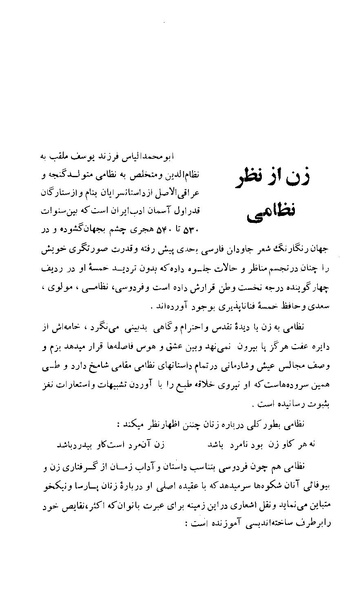 زن از نظر
نظامی
ابومحمدالیاس فرزند یوسف ملقب به
نظام‌الدین ومتخلص به نظامی متولدگنجه و
عراقی‌الاصل ازداستانسرایان بنام و ازستارگان
قدراول آسمان ادب‌ایران است‌که بین‌سنوات
۵۳۰ تا ۵۴۰ هجری چشم بجهان‌گشوده و در
جهان رنگارنگ شعر جاودان فارسی بحدی پیش رفته وقدرت صورتگری خویش
را چنان درتجسم مناظر و حالات جلوه داده‌که بدون تردید خمسهٔ او در ردیف
چهارگوینده درجه نخست وطن قرارش داده است وفردوسی، نظامی ، مولوی ،
سعدی وحافظ خمسهٔ فناناپذیری بوجود آورده‌اند .
نظامی به زن با دیدهٔ تقدس واحترام وگاهی بدبینی می‌نگرد ، خامه‌اش از
دایره عفت هرگز پا بیرون نمی‌نهد وبین عشق و هوس فاصله‌ها قرار میدهد بزم و
وصف مجالس عیش وشادمانی درتمام داستانهای نظامی مقامی شامخ دارد و طی
همین سروده‌هاست‌که او نیروی خلاقه طبع را با آوردن تشبیهات واستعارات نغز
بثبوت رسانیده است .
نظامی بطورکلی درباره زنان چنین اظهارنظر میکند :
نه هر کاو زن بود نامرد باشد    زن آن‌مرد است‌کاو بیدردباشد
نظامی هم چون فردوسی بتناسب داستان و آداب زمان از گرفتاری زن و
بیوفائی آنان شکوه‌ها سرمیدهد که با عقیده اصلی او دربارهٔ زنان پارسا ونیکخو
متباین می‌نماید ونقل اشعاری دراین زمینه برای عبرت بانوان‌که اکثر،نقایص خود
رابرطرف ساخته‌اندبسی آموزنده است :